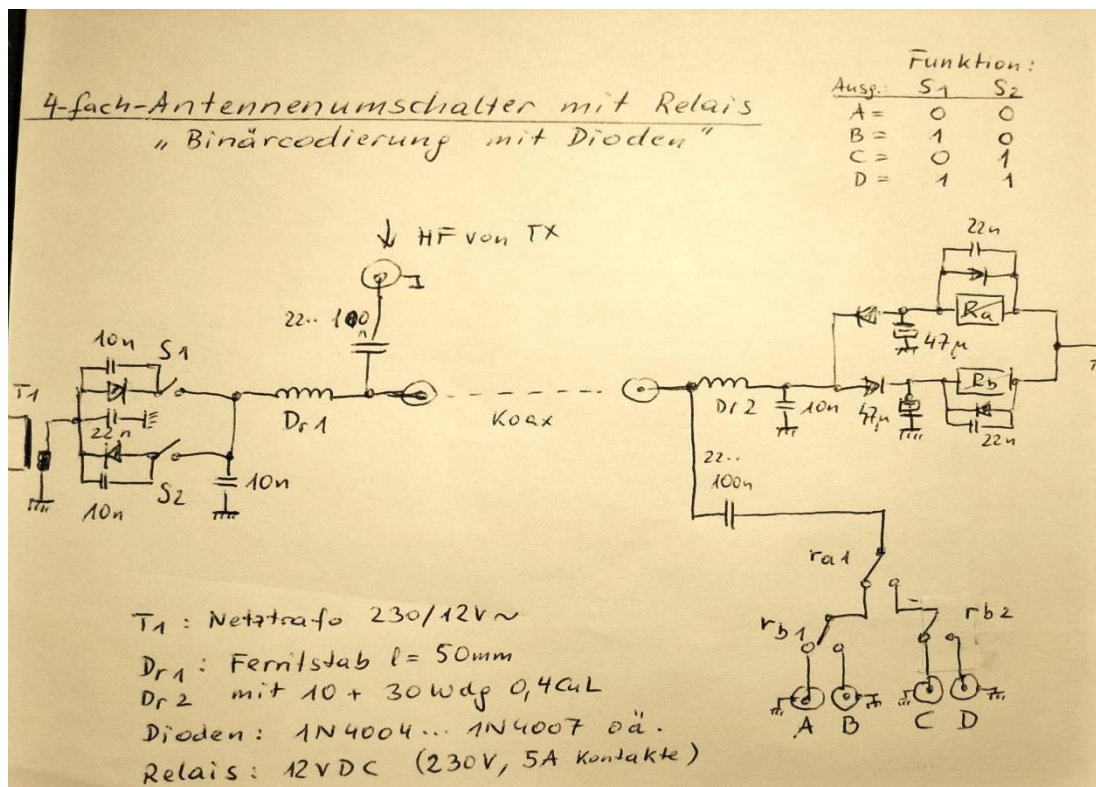 4-fach-Antennenumschalter mit Relais
„Binärcodierung mit Dioden"
Funktion:
Ausg.: S1 S2
A = 0 0
B = 1 0
C = 0 1
D = 1 1
HF von TX
22.. 100n
10n
S1
T1
22n
S2
10n
10n
Dr1
Koax
Dr2
10n
22n
Ra
47µ
Rb
47µ
22n
22..
100n
ra1
rb1
rb2
A B C D
T1: Netztrafo 230/12V~
Dr1: Ferritstab l= 50mm
Dr2 mit 10 + 30 Wdg 0,4CuL
Dioden: 1N4004... 1N4007 oä.
Relais: 12VDC (230V, 5A Kontakte)